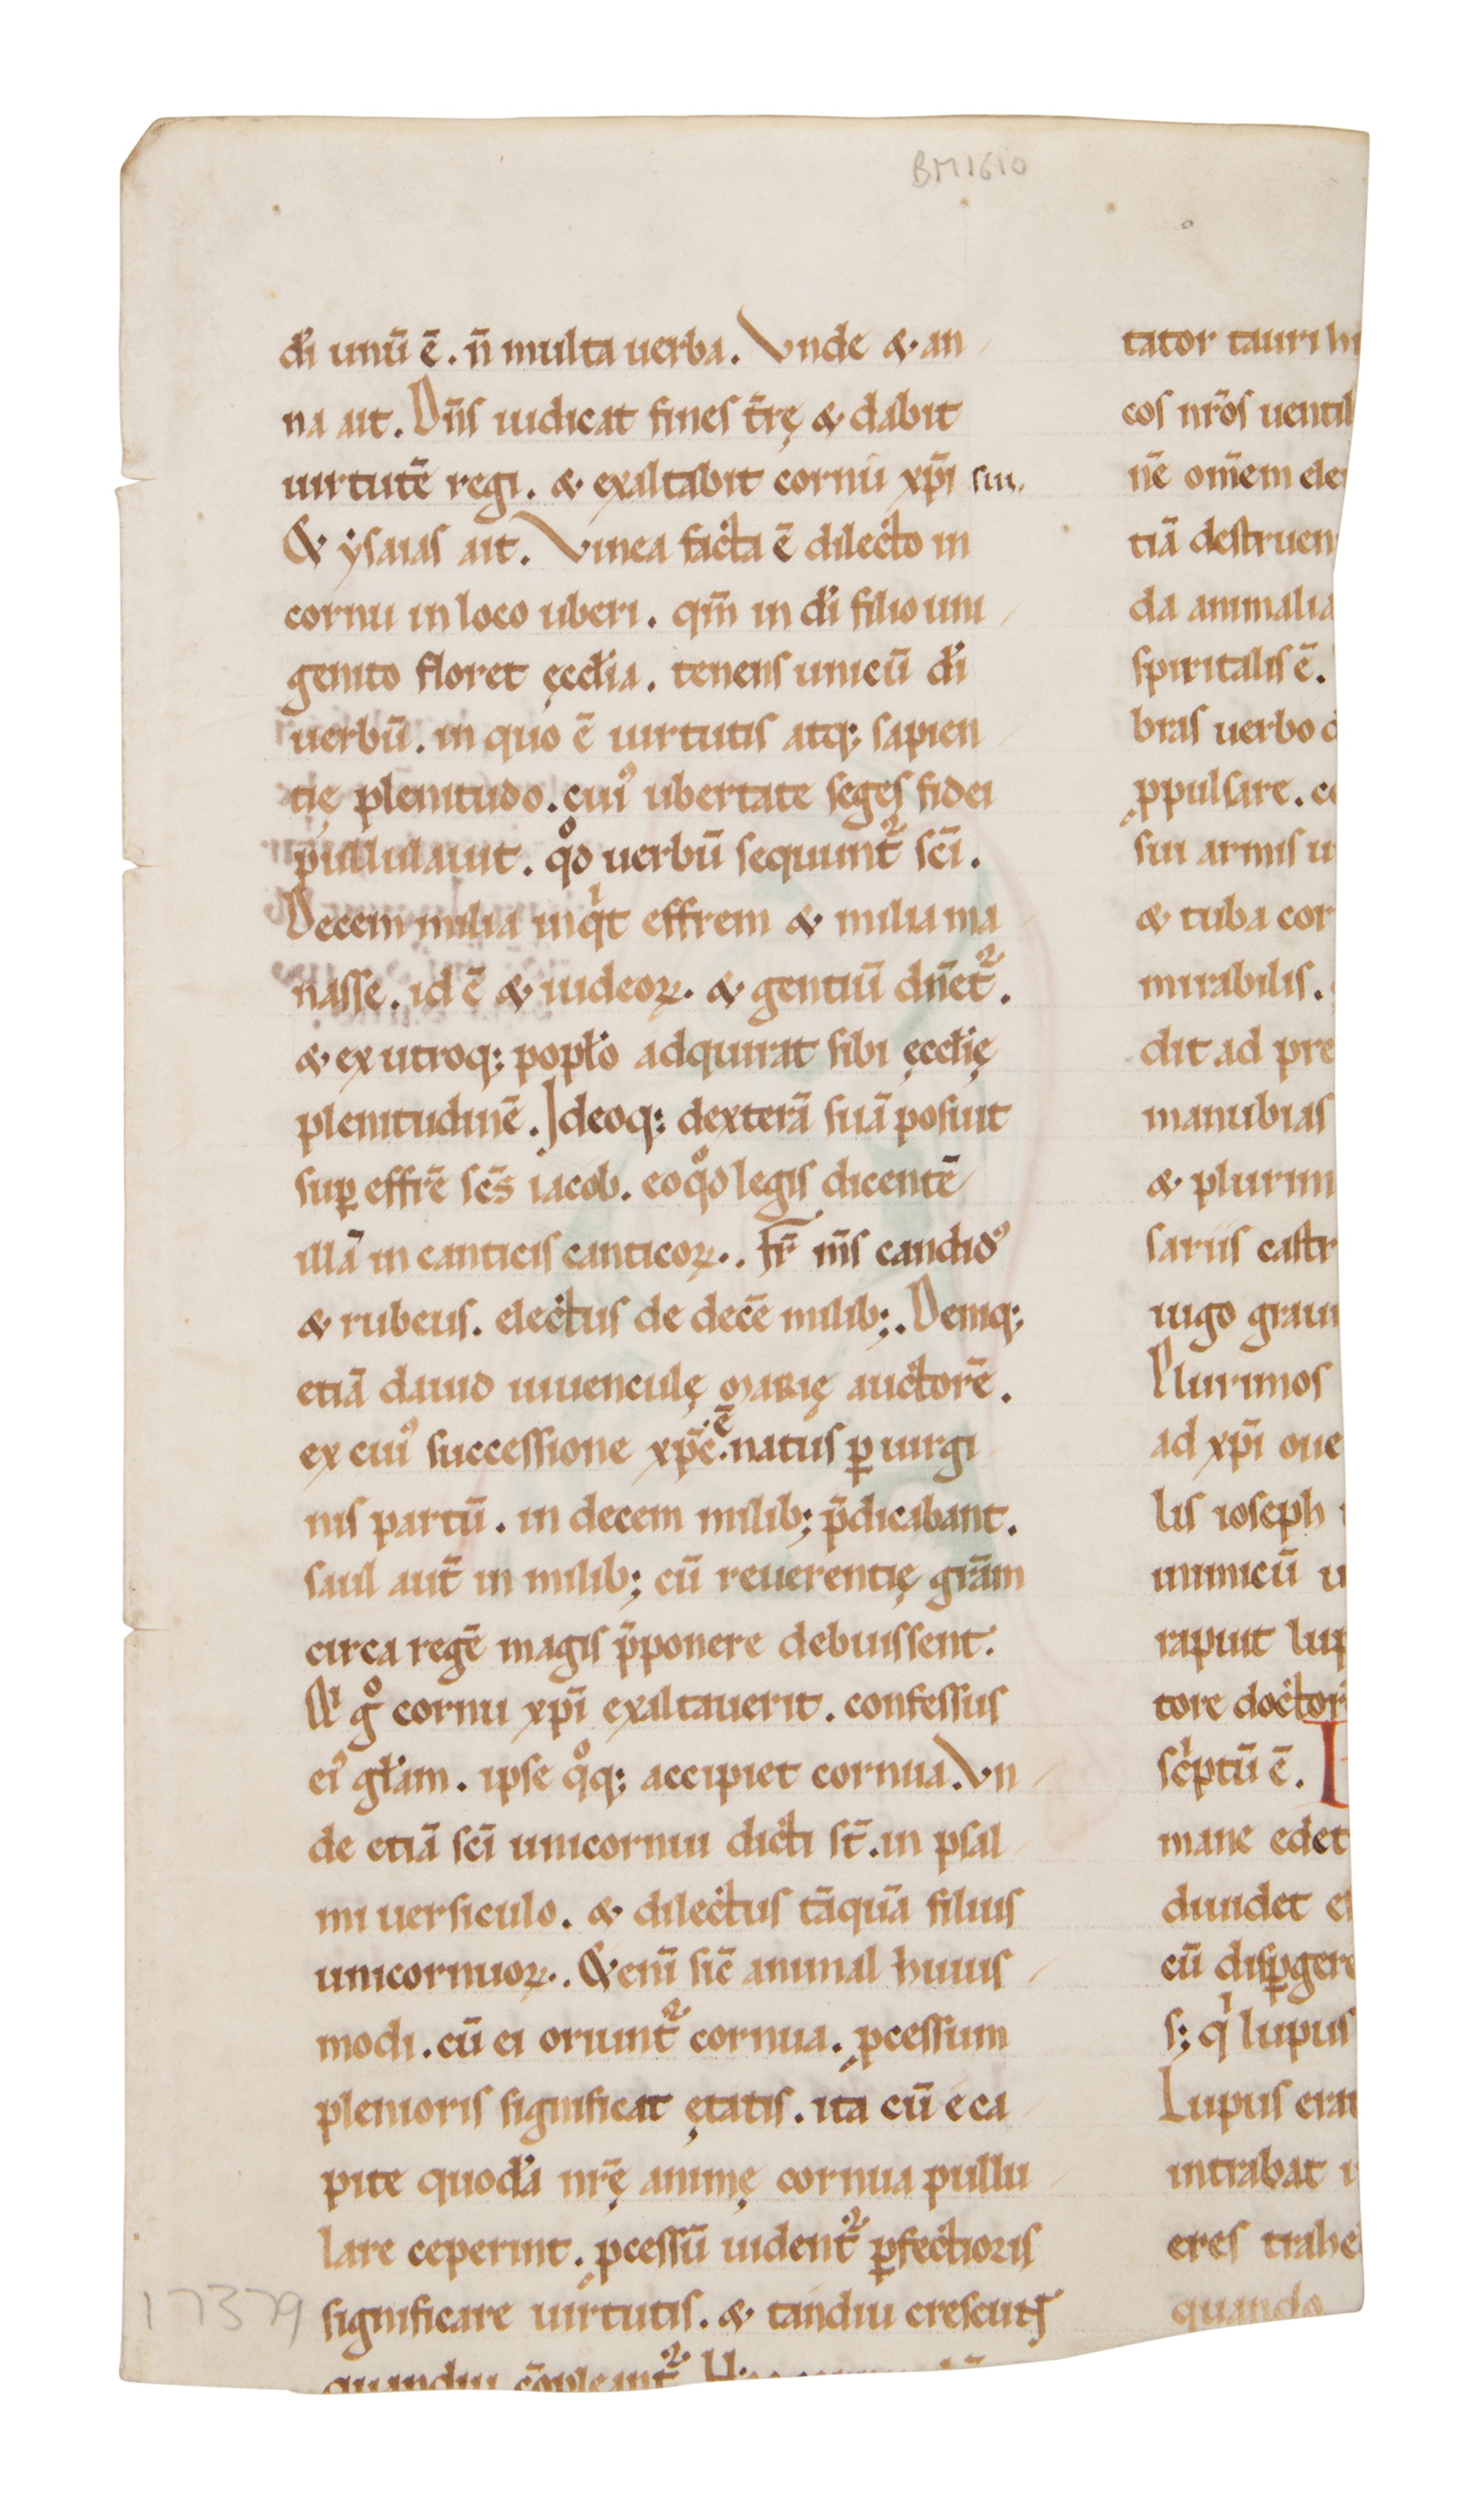 BM1610
di̅ unu̅ e̅. n̅ multa uerba. Vnde & an
na ait. Dn̅s iudicat fines t̅rę & dabit
uirtute̅ regi. & exaltabit cornu xp̅i sui.
& ysaias ait. Vinea facta e̅ dilecto in
cornu in loco uberi. qm̅ in di̅ filio uni
genito floret ęccł̅ia. tenens unicu̅ di̅
uerbu̅. in quo e̅ uirtutis atq; sapien
tię plenitudo. cuiꝰ ubertate seges fidei
pullulauit. qͦd uerbu̅ sequunt᷑ sc̅i.
Decem milia inqͥt effrem & milia ma
nasse. id e̅ & iudeoꝝ. & gentiu̅ dn̅et᷑.
& ex utroq; popło adquirat sibi ęccł̅ię
plenitudine̅. Ideoq; dextera̅ sua̅ posuit
suꝑ effre̅ sc̅s iacob. eo qͦd legis dicente̅
illa̅ in canticis canticoꝝ. fr̅ m̅s candidꝰ
& rubeus. electus de dece̅ milib;. Deniq;
etia̅ dauid iuuenculę marię auctore̅.
ex cuiꝰ successione xp̅c. e̅ natus ꝑ uirgi
nis partu̅. in decem milib; p̅dicabant.
saul aut̅ in milib; cu̅ reuerentię gra̅m
circa rege̅ magis p̅ponere debuissent.
Qͥ gͦ cornu xp̅i exaltauerit. confessus
eiꝰ gł̅am. ipse qͦq; accipiet cornua. Vn
de etia̅ sc̅i unicornui dicti st̅. in psal
mi uersiculo. & dilectus ta̅qua̅ filius
unicornuoꝝ. &eni̅ sic̅ animal huius
modi. cu̅ ei oriunt᷑ cornua. ꝓcessum
plenioris significat ętatis. ita cu̅ e ca
pite quoda̅ nr̅ę animę cornua pullu
lare ceperint. ꝓcessu̅ uident᷑ ꝑfectioris
significare uirtutis. & tandiu crescunt
quandiu co̅pleant᷑
tator tauri hi
cos nr̅os uentil
ne̅ omn̅em ele
tia̅ destruen
da animalia
spiritalis e̅.
bras uerbo d
ꝓpulsare. c
sui armis u
& tuba cor
mirabilis.
dit ad pre
manubias
& plurim
sariis castr
iugo graui
Plurimos
ad xp̅i oue
lis ioseph
inimicu̅ u
rapuit lup
tore doctor
scͥptu̅ e̅.
mane edet
diuidet e
cu̅ disꝑgere
s; qͥ lupus
Lupus erat
intrabat
eres trahe
quando
17379